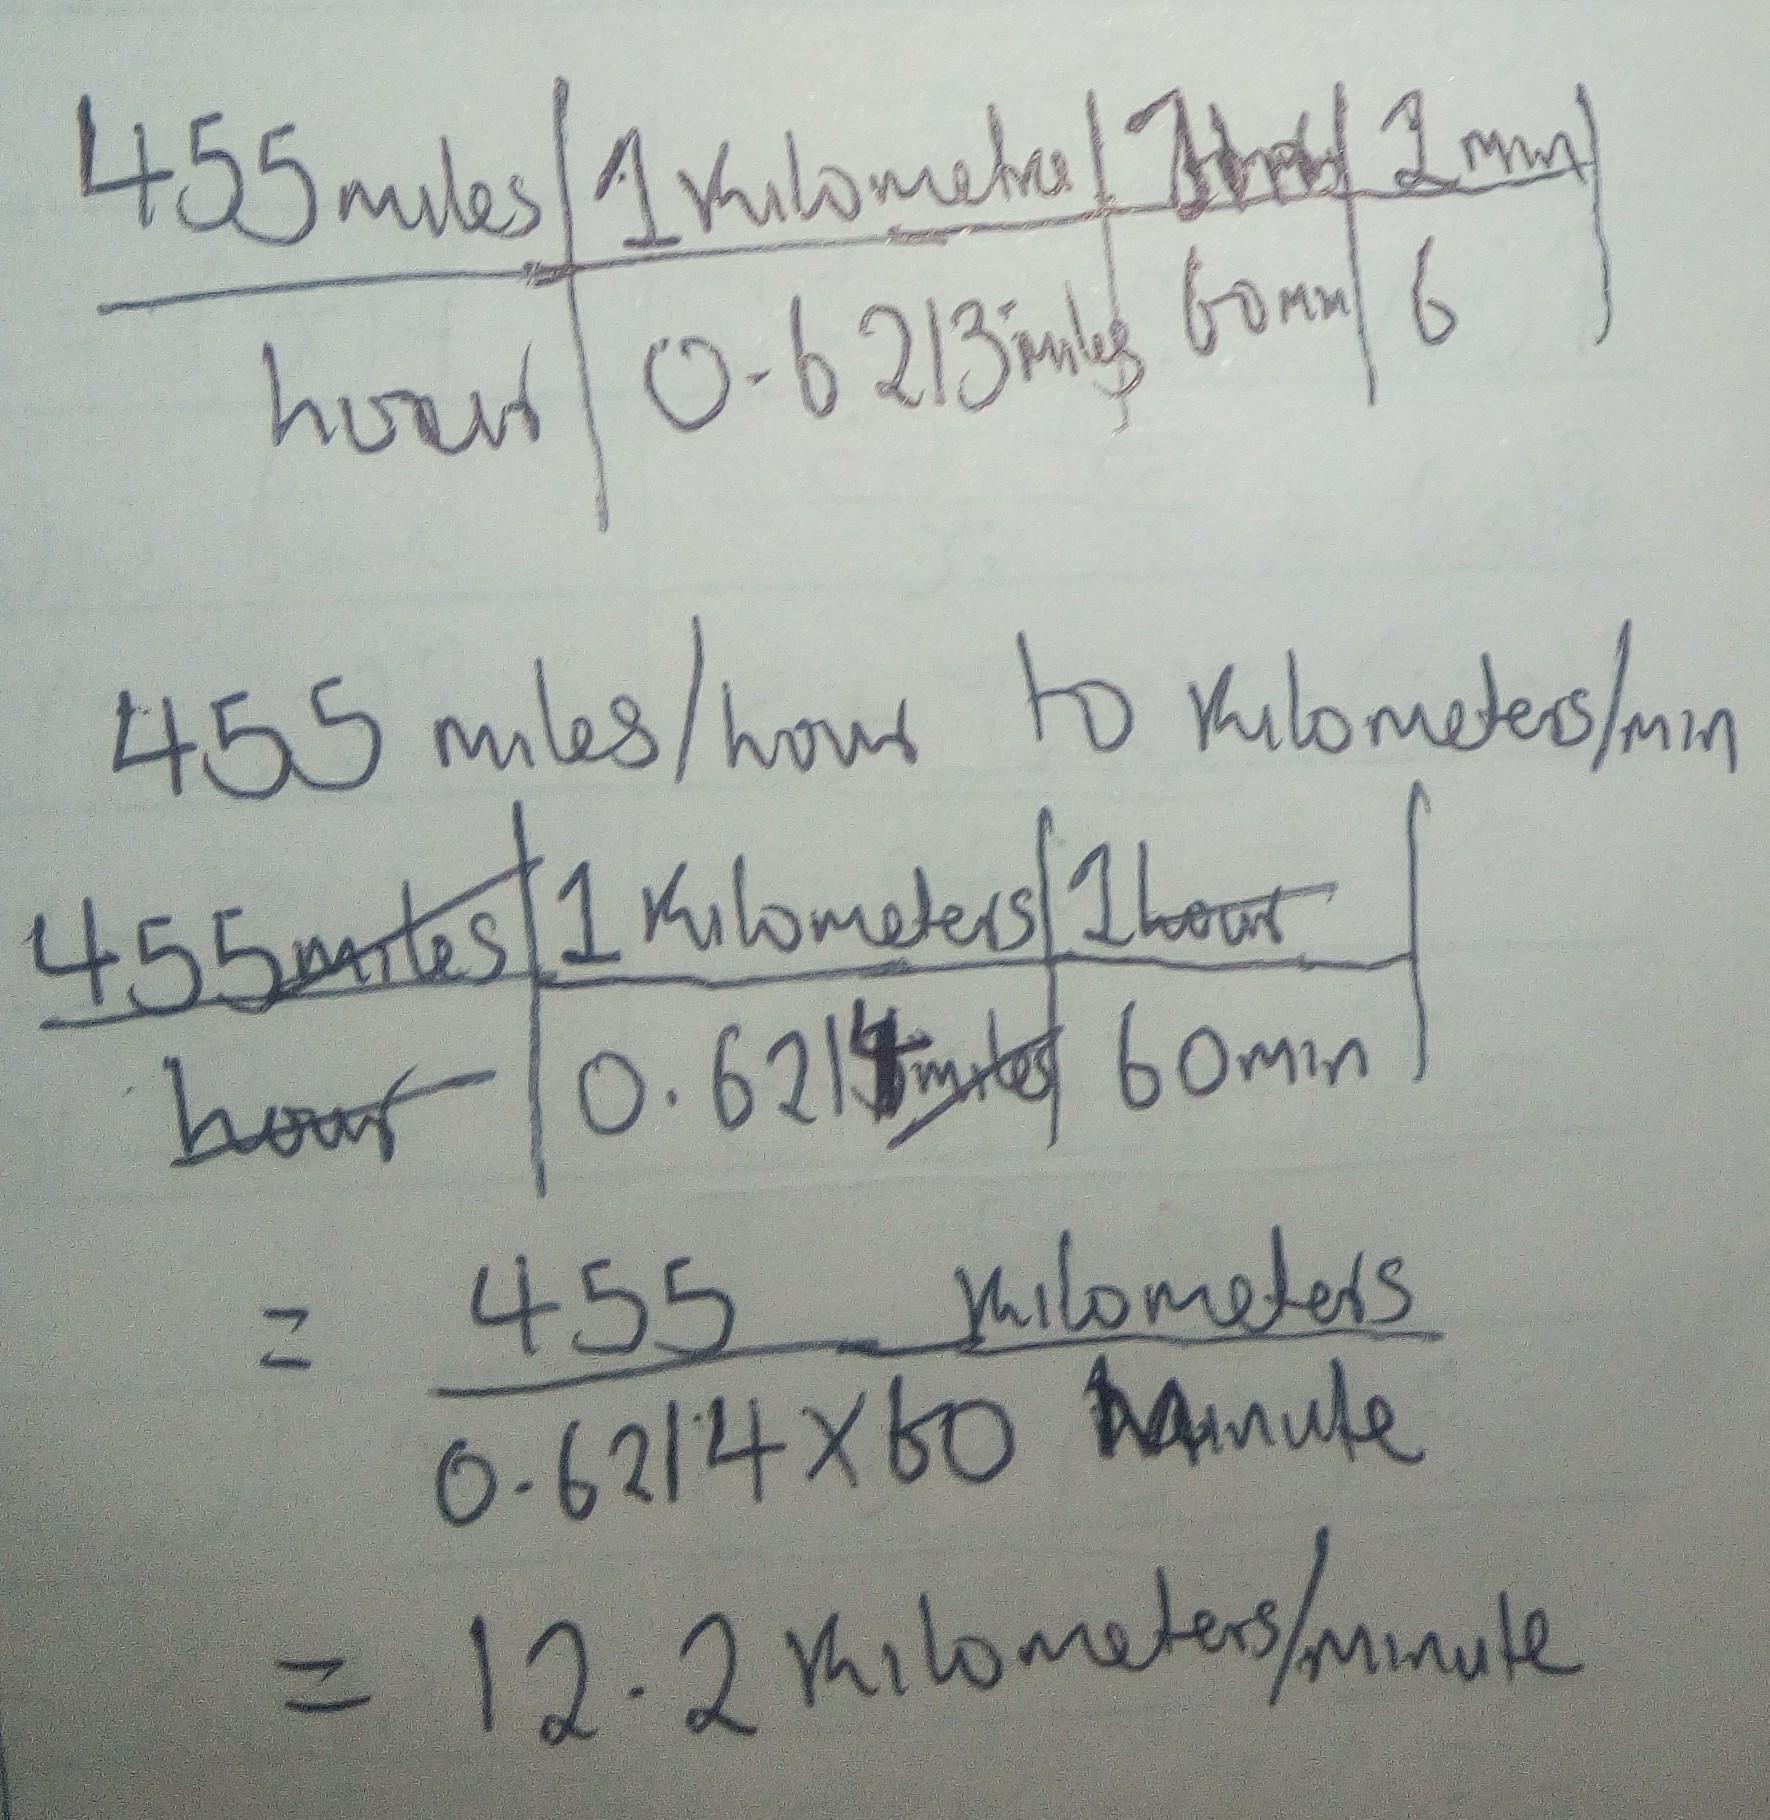 455 miles | 1 kilometre | 1 | 1 min
hour | 0.6213 miles | 60 min | 6
455 miles/hour to kilometers/min
455 miles | 1 kilometers | 1 hour
hour | 0.6214 miles | 60 min
= 455 kilometers
0.6214 x 60 minute
= 12.2 kilometers/minute